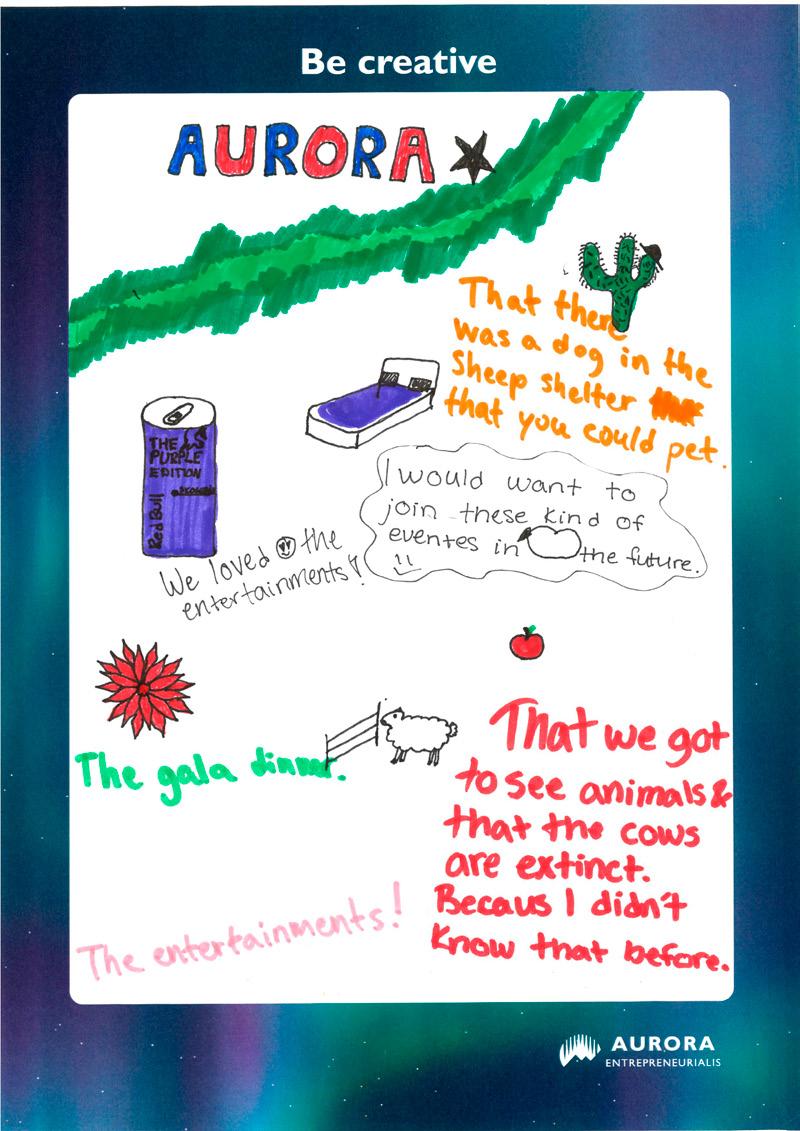 Be creative
AURORA
That there
was a dog in the
sheep shelter
that you could pet.
THE
PURPLE
EDITION
Red Bull
I would want to
join these kind of
eventes in the future.
We loved the
entertainments!
The gala dinner.
That we got
to see animals &
that the cows
are extinct.
Becaus I didn't
know that before.
The entertainments!
AURORA
ENTREPRENEURIALIS